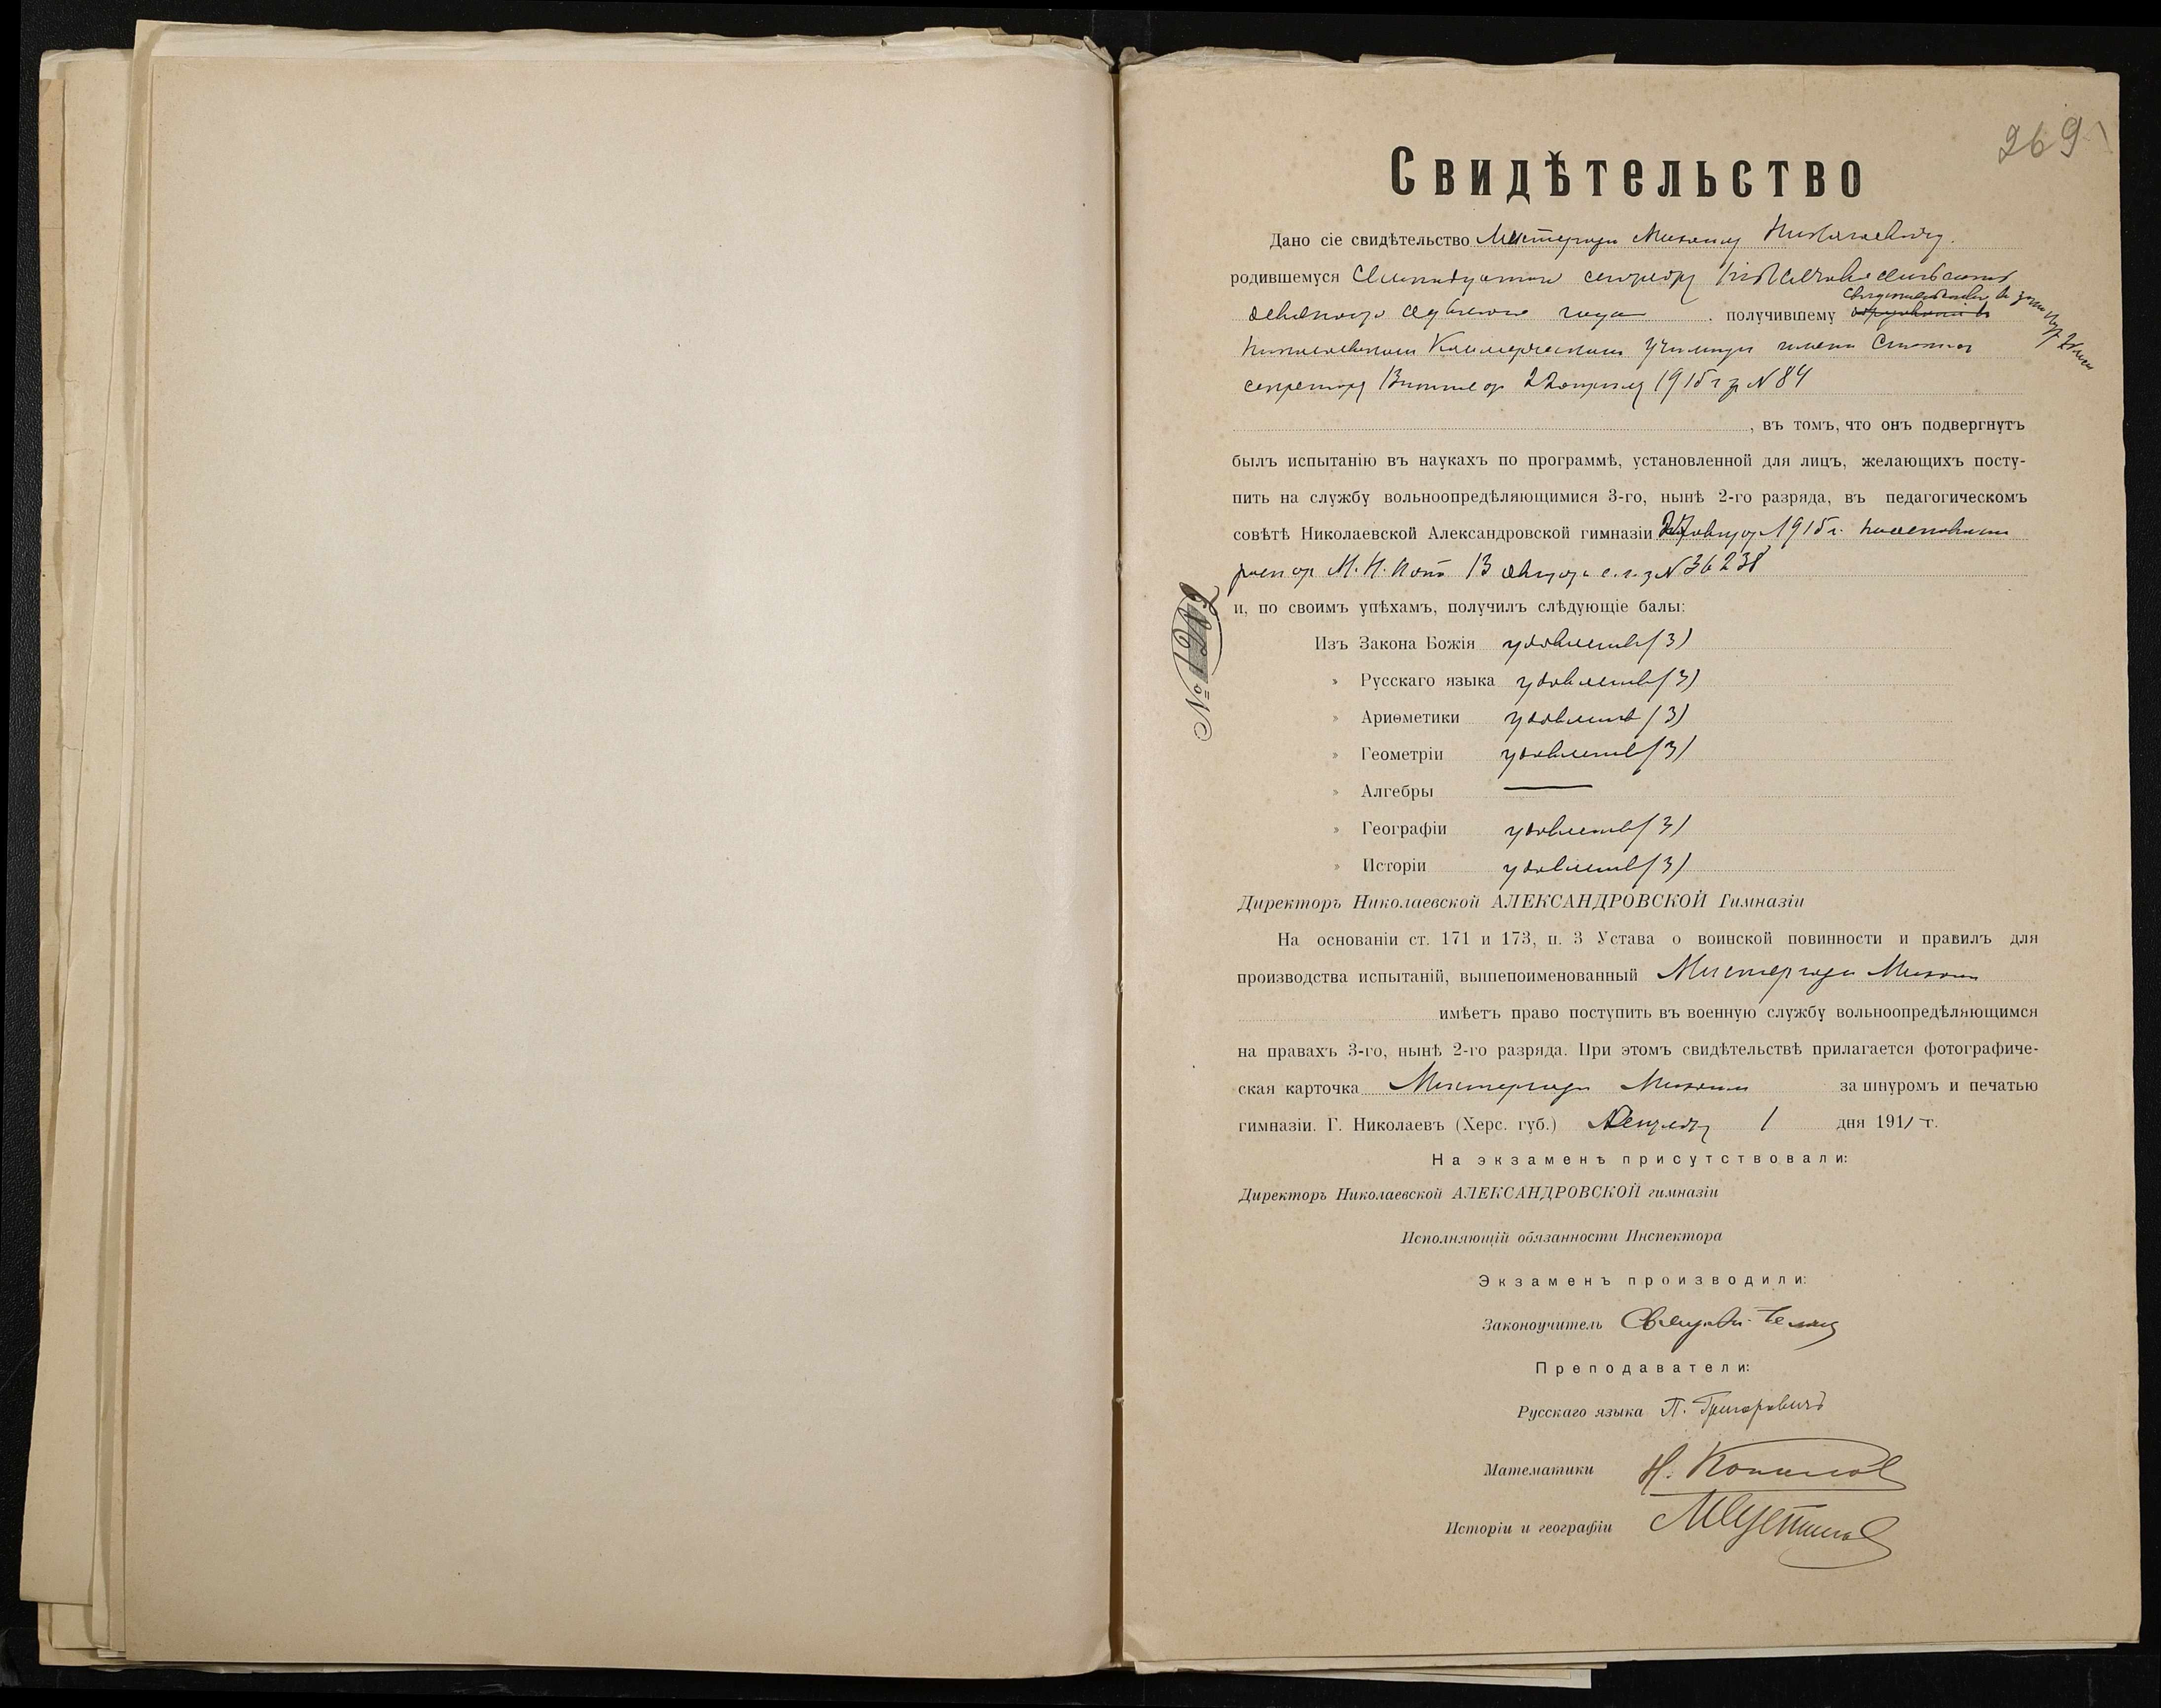 269
Свидѣтельство
Дано сіе свидѣтельство Михаилу Николаевичу.
родившемуся
девяносто седьмого года . получившему свидетельство
Николаевскомъ Коммерческомъ Училищѣ имени Статсъ
секретаря Витте отъ 2 апрѣля 1915 г за N 84
, въ томъ, что онъ подвергнутъ
былъ испытанію въ наукахъ по программѣ, установленной для лицъ, желающихъ посту-
пить на службу вольноопредѣляющимися 3-го, нынѣ 2-го разряда, въ педагогическомъ
совѣтѣ Николаевской Александровской гимназіи 1915 г.
М. Н. Пр. 13 с. г. за N 36238
№ 1202
и, по своимъ успѣхамъ, получилъ слѣдующіе балы:
Изъ Закона Божія удовлетв (3)
» Русскаго языка удовлетв (3)
» Ариѳметики удовлетв (3)
» Геометріи удовлетв (3)
» Алгебры —
» Географіи удовлетв (3)
» Исторіи удовлетв (3)
Директоръ Николаевской АЛЕКСАНДРОВСКОЙ Гимназіи
На основаніи ст. 171 и 173, п. 3 Устава о воинской повинности и правилъ для
производства испытаній, вышепоименованный Михаил
имѣетъ право поступить въ военную службу вольноопредѣляющимся
на правахъ 3-го, нынѣ 2-го разряда. При этомъ свидѣтельствѣ прилагается фотографиче-
ская карточка Михаил за шнуромъ и печатью
гимназіи. Г. Николаевъ (Херс. губ.) 1 дня 191 г.
На экзаменѣ присутствовали:
Директоръ Николаевской АЛЕКСАНДРОВСКОЙ гимназіи
Исполняющій обязанности Инспектора
Экзаменъ производили:
Законоучитель
Преподаватели:
Русскаго языка П. Григоровичъ
Математики Н.
Исторіи и географіи